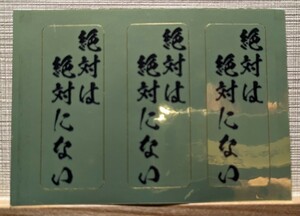 絶対は
絶対にない
絶対は
絶対にない
絶対は
絶対にない